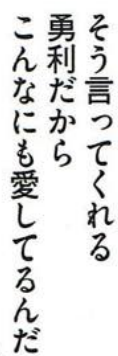 そう言ってくれる
勇利だから
こんなにも愛してるんだ